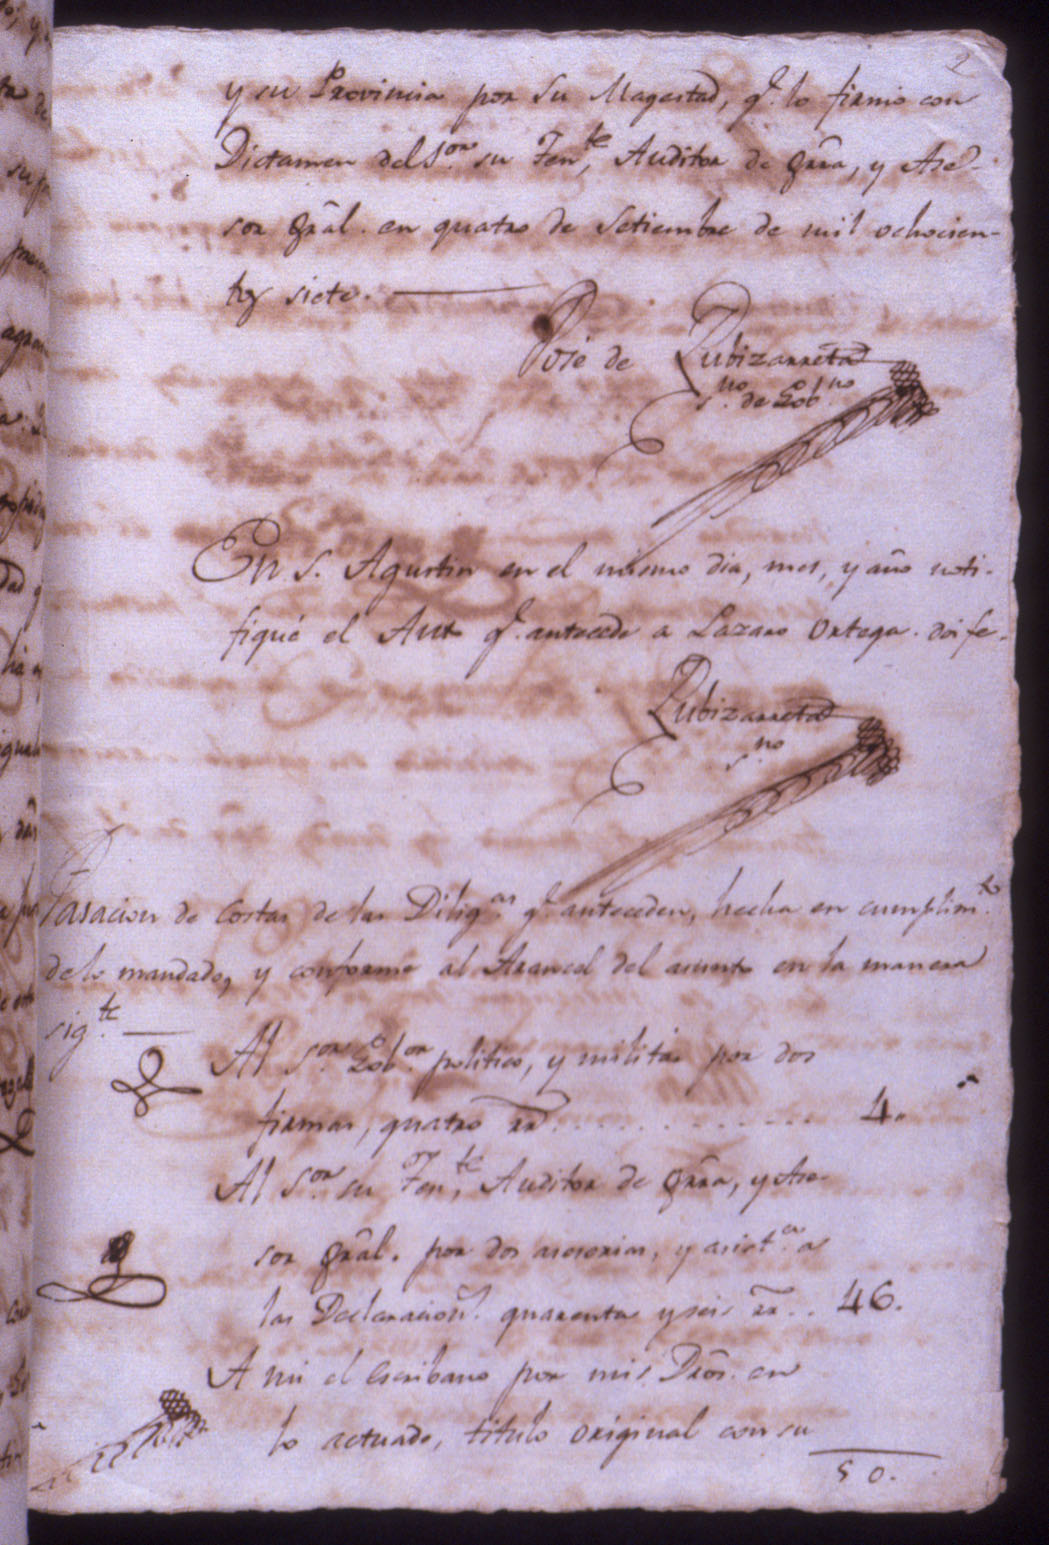 2
y su Provincia por Su Magestad, q.e lo firmó con
Dictamen del S.or su Ten.te Auditor de Grra, y Ase-
sor Grâl. en quatro de Setiembre de mil ochocien-
tos siete.
José de Zubizarreta
s.no de Gob.no
En S. Agustin en el mismo dia, mes, y año noti-
fiqué el Auto q.e antecede a Lazaro Ortega. doi fe.
Zubizarreta
s.no
Tasacion de Costas de las Dilig.as q.e anteceden, hecha en cumplim.to
de lo mandado, y conforme al Arancel del asunto en la manera
sig.te
Al S.or Gob.or politico, y militar por dos
firmas, quatro rr. . . . . . . . . . . 4.
Al S.or su Ten.te Auditor de Grra, y Ase-
sor Grâl. por dos asesorias, y asist.a a
las Declaracion.s quarenta y seis rr. . 46.
A mi el Escribano por mis Dros. en
lo actuado, titulo original con su
50.